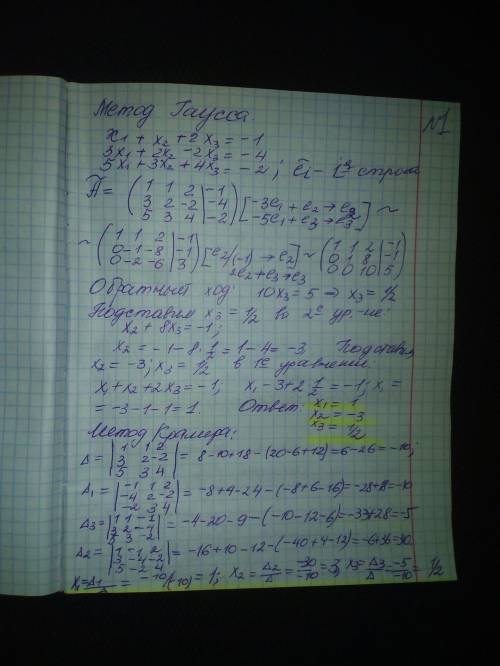 Метод Гаусса. №1
x1 + x2 + 2x3 = -1
3x1 + 2x2 - 2x3 = -4
5x1 + 3x2 + 4x3 = -2 ; ei -
Ã = (1 1 2 | -1
3 2 -2 | -4
5 3 4 | -2) [-3e1 + e2 → e2
-5e1 + e3 → e3] ~
~ (1 1 2 | -1
0 -1 -8 | -1
0 -2 -6 | 3) [e2/(-1) → e2
2e2 + e3 → e3] ~ (1 1 2 | -1
0 1 8 | -1
0 0 10 | 5)
Обратный ход: 10x3 = 5 ⇒ x3 = 1/2
Подставим x3 = 1/2 во 2е ур-ие:
x2 + 8x3 = -1;
x2 = -1 - 8 · 1/2 = 1 - 4 = -3 Подставим
x2 = -3; x3 = 1/2 в 1е уравнение:
x1 + x2 + 2x3 = -1; x1 - 3 + 2 1/2 = -1; x1 =
= -3 - 1 - 1 = 1. Ответ: x1 = 1
x2 = -3
x3 = 1/2
Метод Крамера:
Δ = |1 1 2
3 2 -2
5 3 4| = 8 - 10 + 18 - (20 - 6 + 12) = 6 - 26 = -10;
Δ1 = |-1 1 2
-4 2 -2
-2 3 4| = -8 + 4 - 24 - (-8 + 6 - 16) = -28 + 8 = -10
Δ3 = |1 1 -1
3 2 -4
5 3 -2| = -4 - 20 - 9 - (-10 - 12 - 6) = -33 + 28 = -5
Δ2 = |1 -1 2
3 -4 -2
5 -2 4| = -16 + 10 - 12 - (-40 + 4 - 12) = -6 + 36 = 30
x1 = Δ1/Δ = -10/(-10) = 1; x2 = Δ2/Δ = -30/-10 = 3; x3 = Δ3/Δ = -5/-10 = 1/2